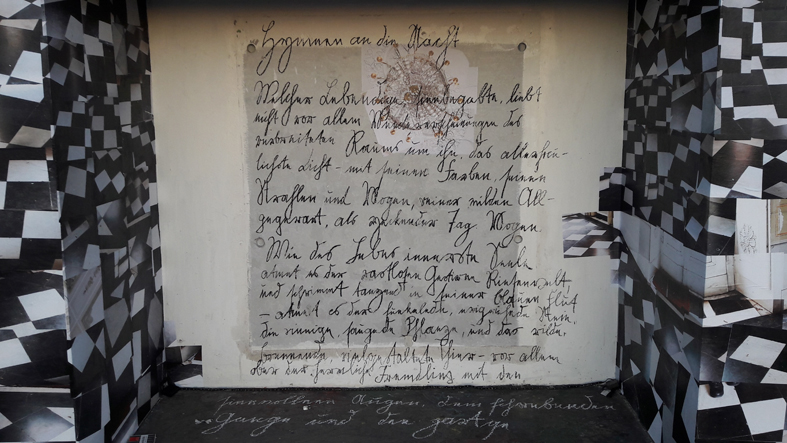 Hymnen an die Nacht
Welcher Lebendige, Sinnbegabte, liebt
nicht vor allem Wundererscheinungen des
verbreiteten Raums um ihn, das allerfreu-
lichste Licht – mit seinen Farben, seinen
Strahlen und Wogen, seiner milden All-
gegenwart, als weckender Tag Wogen.
Wie des Lebens innerste Seele
atmet es der rastlosen Gestirne Riesenwelt,
und schwimmt tanzend in seiner blauen Flut
– atmet es der funkelnde, ewigruhende Stein,
die sinnige, saugende Pflanze, und das wilde,
brennende, vielgestaltete Thier – vor allem
aber der herrliche Fremdling mit den
sinnvollen Augen, dem schwebenden
Gange und den zartge